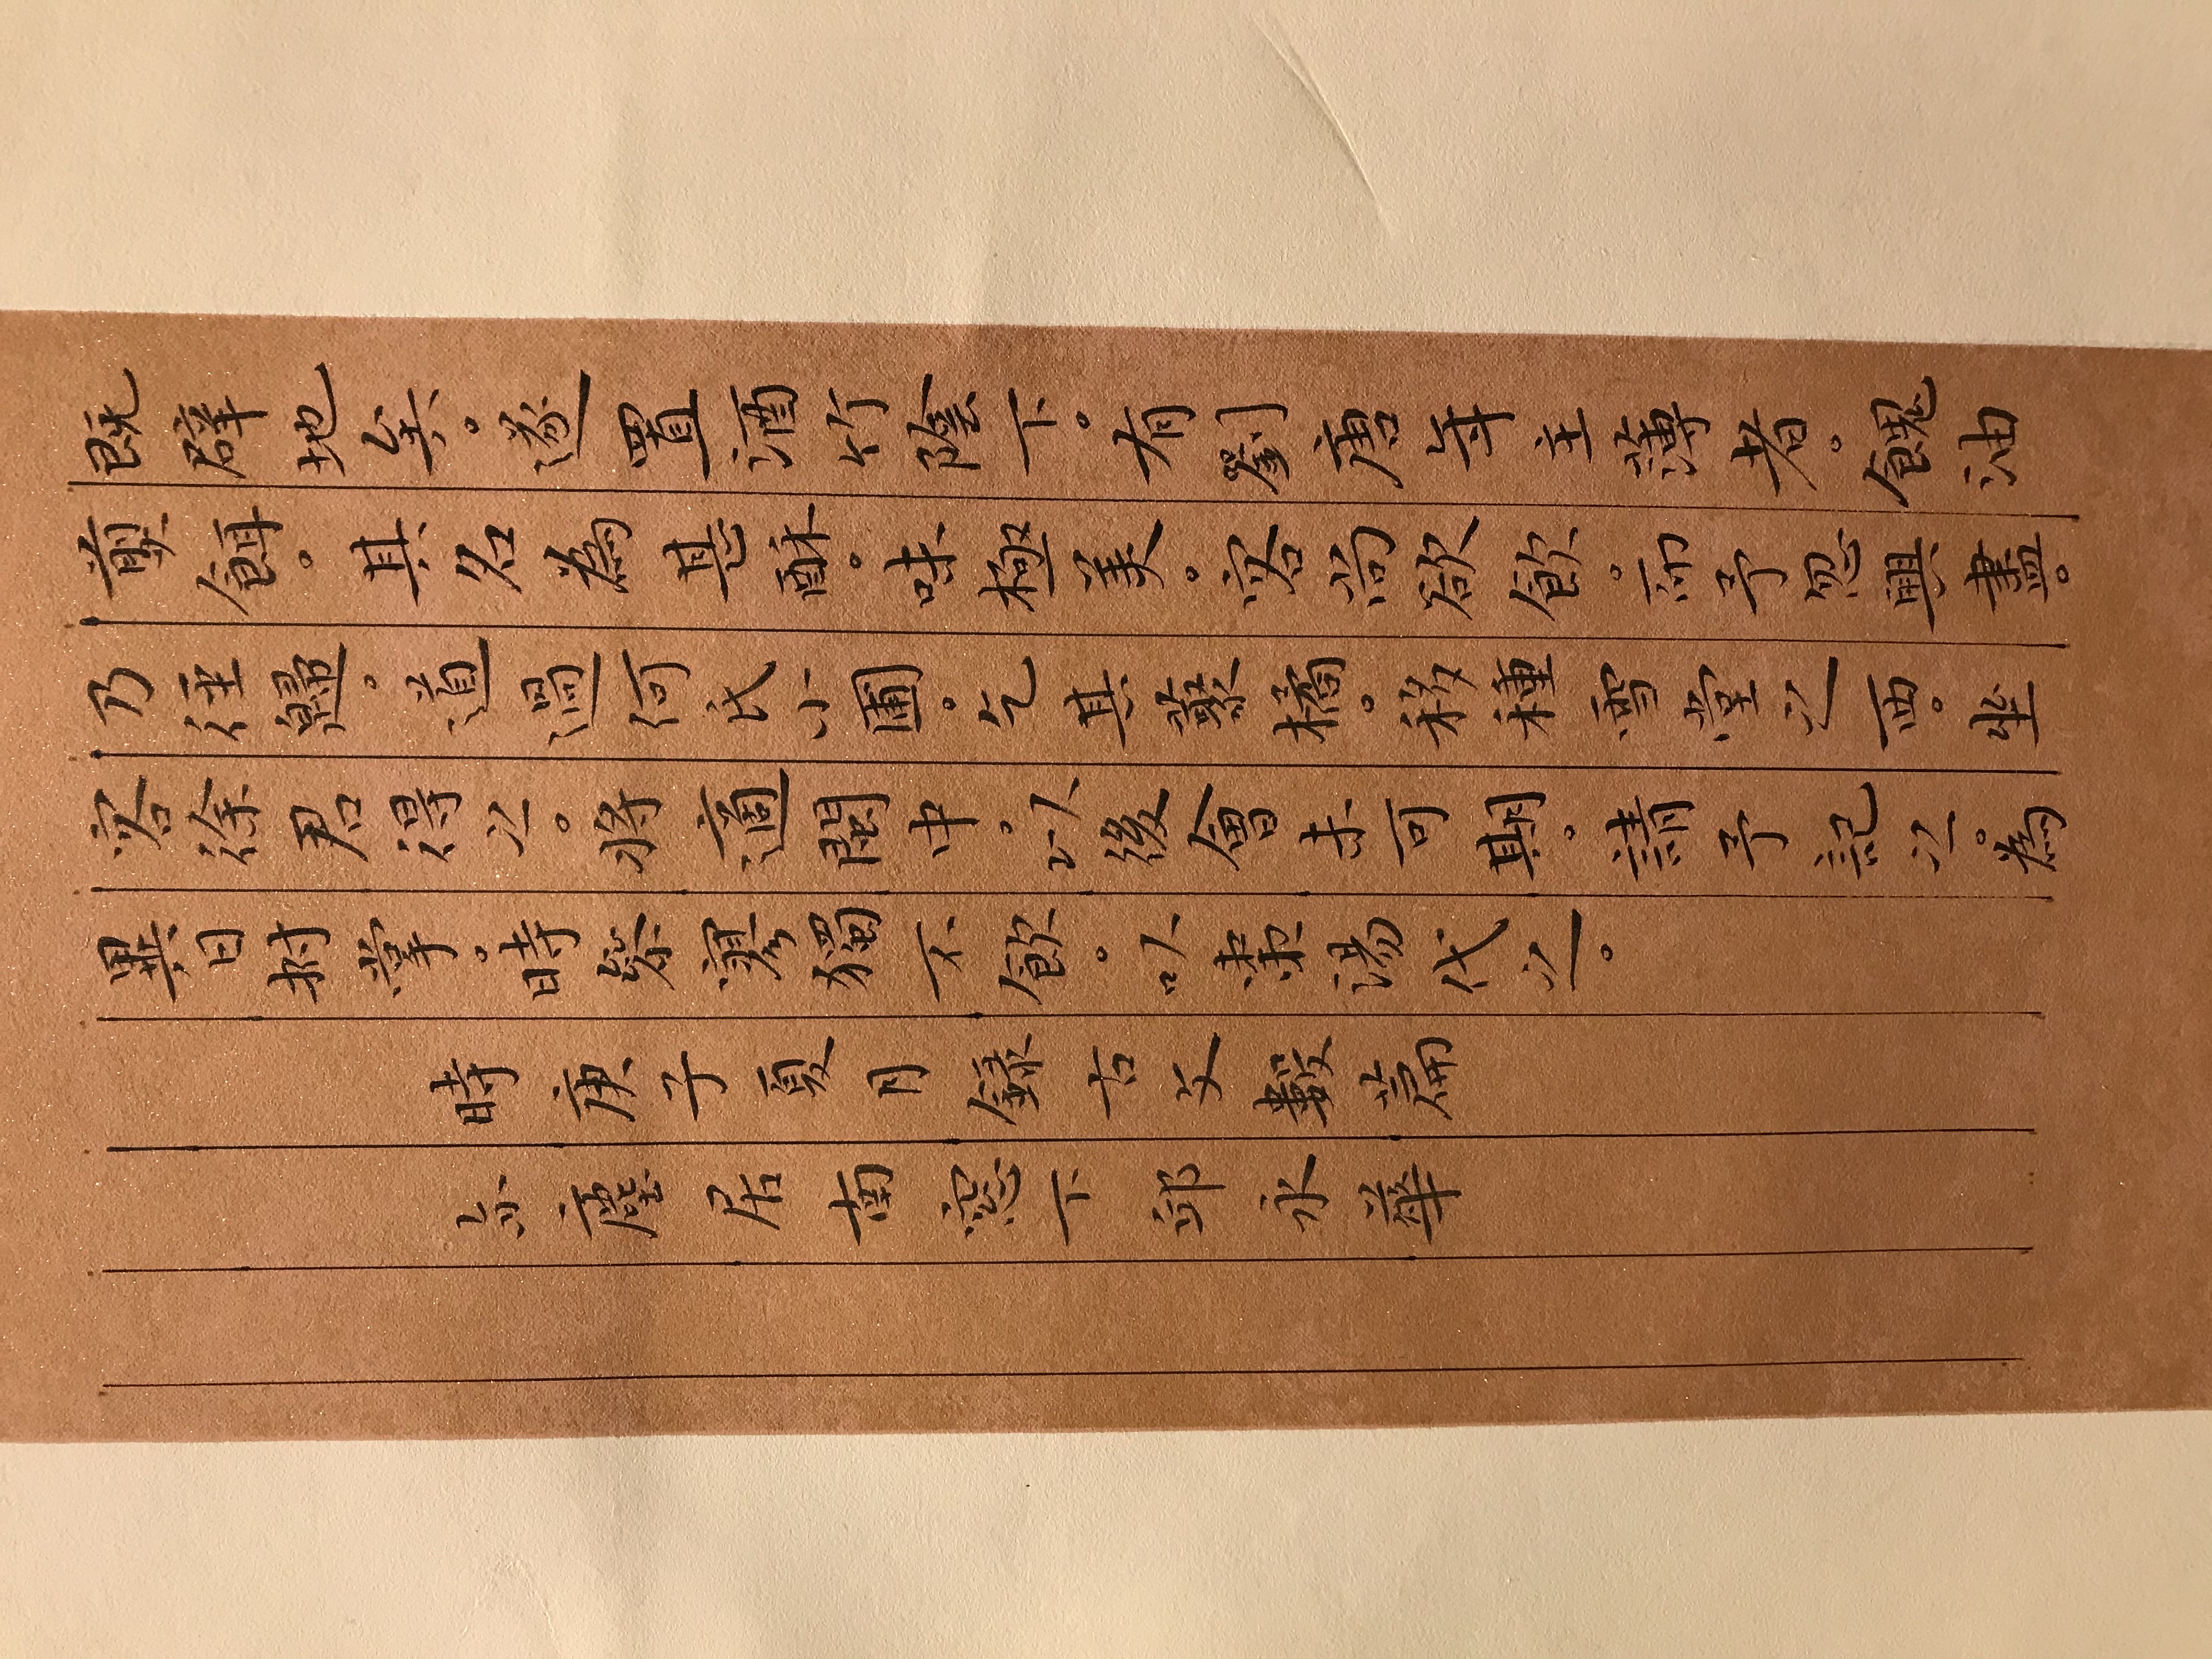 既辟地矣。遂置酒竹陰下。有劉唐年主簿者。餽油
煎餌。其名為甚酥。味極美。客尚欲飲。而予忽興盡。
乃徑歸。道過何氏小圃。乞其藂橘。移種雪堂之西。坐
客徐君得之。將適閩中。以後會未可期。請予記之。為
異日拊掌。時參寥獨不飲。以棗湯代之。
時庚子夏月錄古文數篇
塵居南窓下 永華